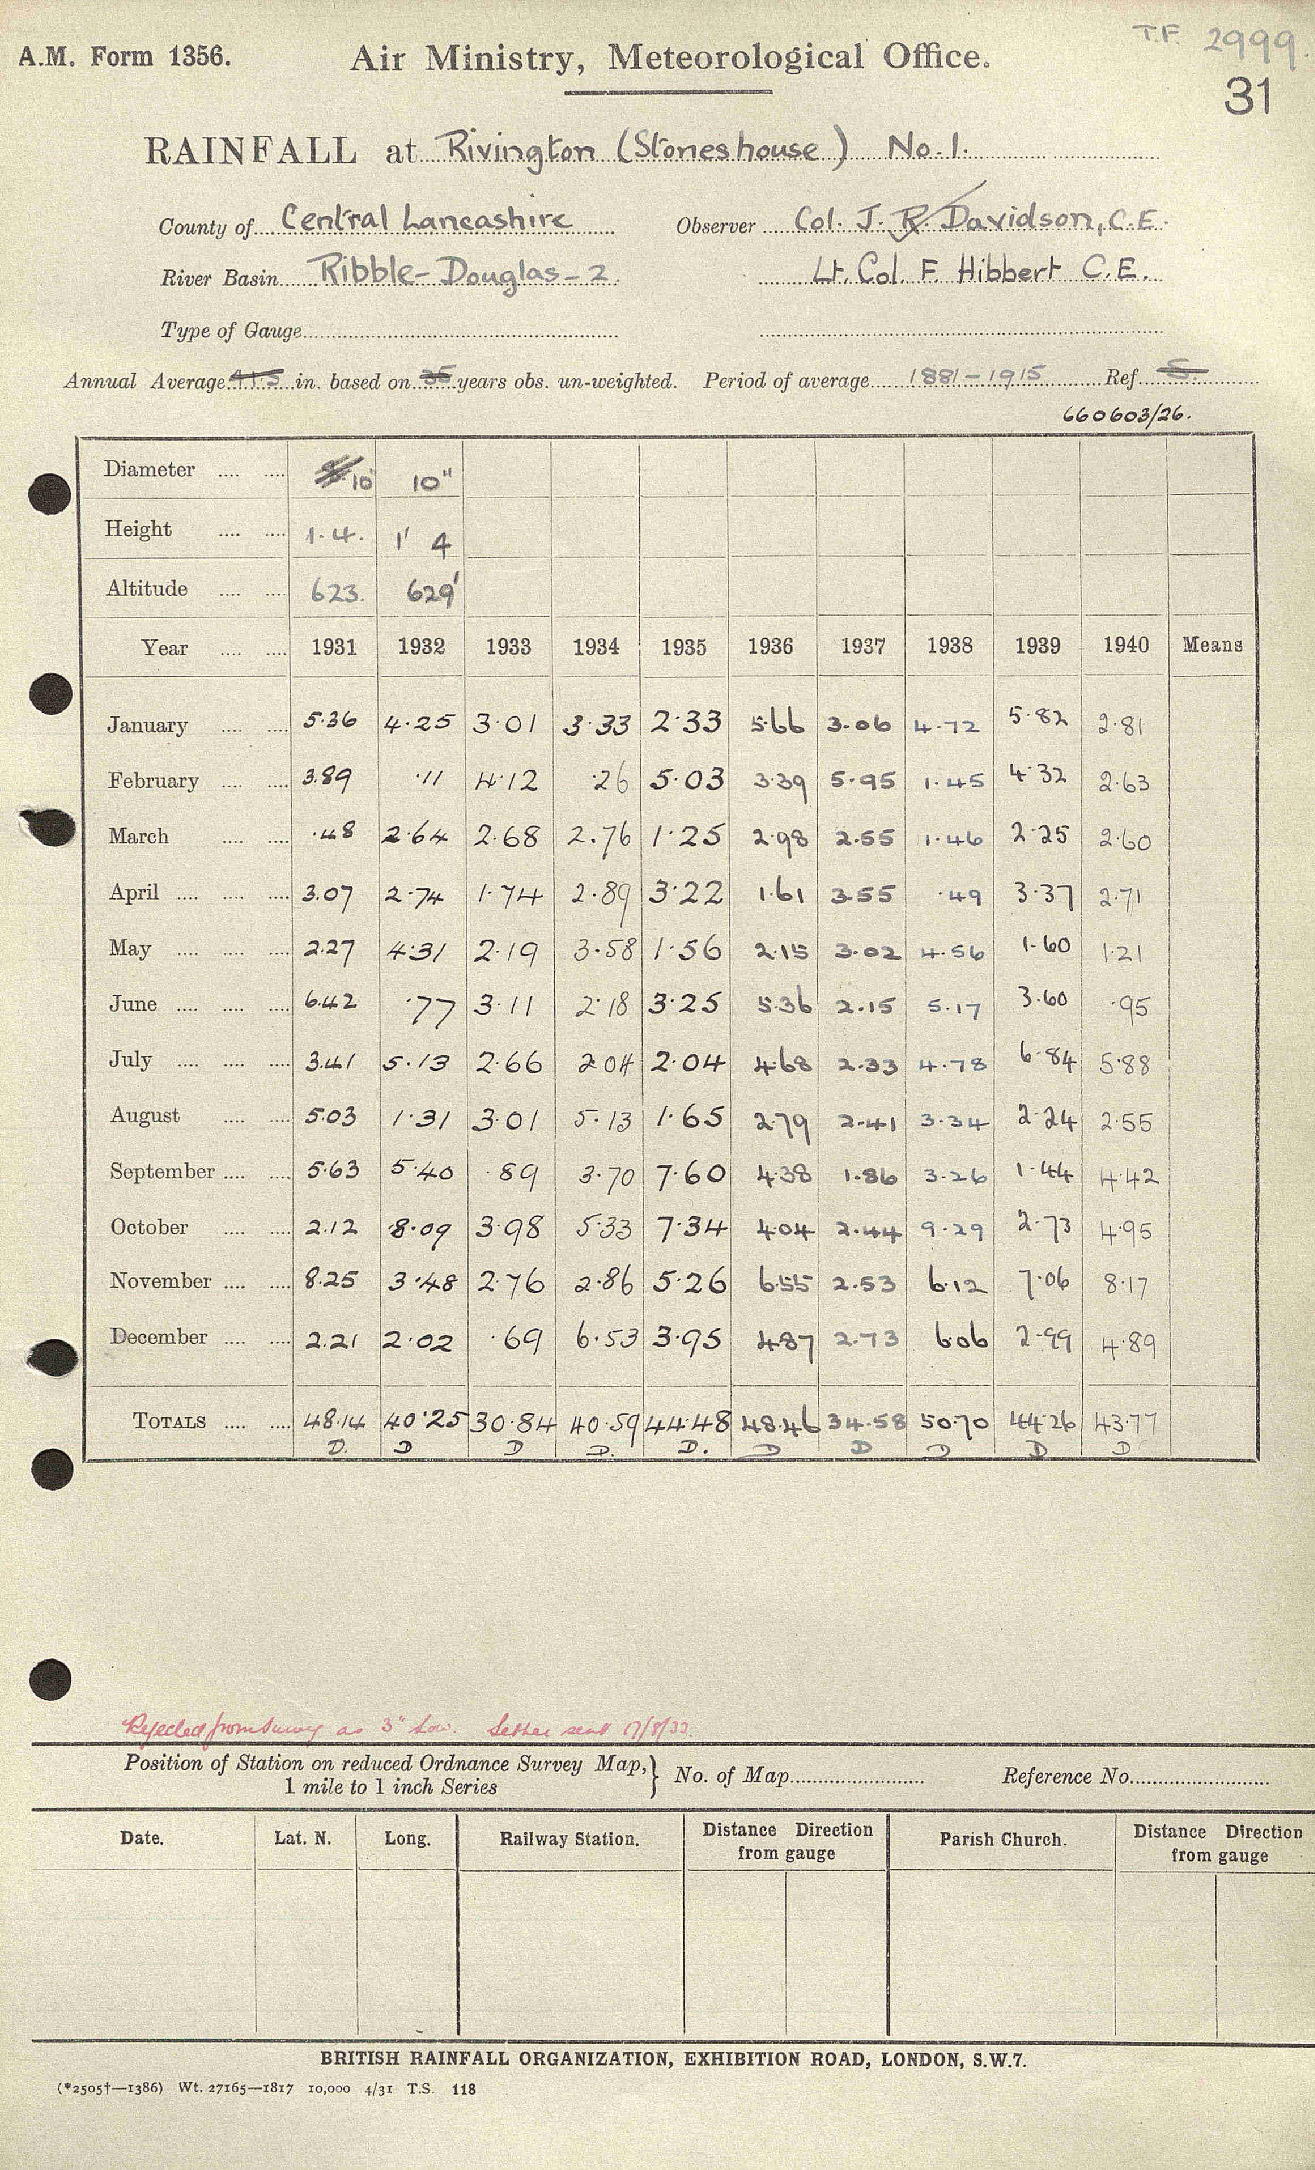 T.F. 2999.
A.M. Form 1356. Air Ministry, Meteorological Office.
31
RAINFALL at Rivington (Stoneshouse) No. 1.
County of Central Lancashire Observer Col. J. R. Davidson, C.E.
River Basin Ribble-Douglas-2. Lt. Col. F. Hibbert C.E.
Type of Gauge
Annual Average 41.5 in. based on 35 years obs. un-weighted. Period of average 1881-1915 Ref. S.
660603/26.
Diameter .... .... 10 10"
Height .... .... 1.4. 1' 4
Altitude .... .... 623. 629'
Year .... .... 1931 1932 1933 1934 1935 1936 1937 1938 1939 1940 Means
January .... .... 5.36 4.25 3.01 3.33 2.33 5.66 3.06 4.72 5.82 2.81
February .... .... 3.89 .11 4.12 .26 5.03 3.39 5.95 1.45 4.32 2.63
March .... .... .48 2.64 2.68 2.76 1.25 2.98 2.55 1.46 2.25 2.60
April .... .... .... 3.07 2.74 1.74 2.89 3.22 1.61 3.55 .49 3.37 2.71
May .... .... .... 2.27 4.31 2.19 3.58 1.56 2.15 3.02 4.56 1.60 1.21
June .... .... .... 6.42 .77 3.11 2.18 3.25 5.36 2.15 5.17 3.60 .95
July .... .... .... 3.41 5.13 2.66 2.04 2.04 4.68 2.33 4.78 6.84 5.88
August .... .... 5.03 1.31 3.01 5.13 1.65 2.79 2.41 3.34 2.24 2.55
September .... .... 5.63 5.40 .89 3.70 7.60 4.38 1.86 3.26 1.44 4.42
October .... .... 2.12 8.09 3.98 5.33 7.34 4.04 2.44 9.29 2.73 4.95
November .... .... 8.25 3.48 2.76 2.86 5.26 6.55 2.53 6.12 7.06 8.17
December .... .... 2.21 2.02 .69 6.53 3.95 4.87 2.73 6.06 2.99 4.89
TOTALS .... .... 48.14 40.25 30.84 40.59 44.48 48.46 34.58 50.70 44.26 43.77
D. D D D. D. D D D D D
Rejected from Survey as 3" low. Letter sent 17/8/33.
Position of Station on reduced Ordnance Survey Map, } No. of Map Reference No.
1 mile to 1 inch Series
Date. Lat. N. Long. Railway Station. Distance Direction from gauge Parish Church. Distance Direction from gauge
BRITISH RAINFALL ORGANIZATION, EXHIBITION ROAD, LONDON, S.W.7.
(*2505†—1386) Wt. 27165—1817 10,000 4/31 T.S. 118